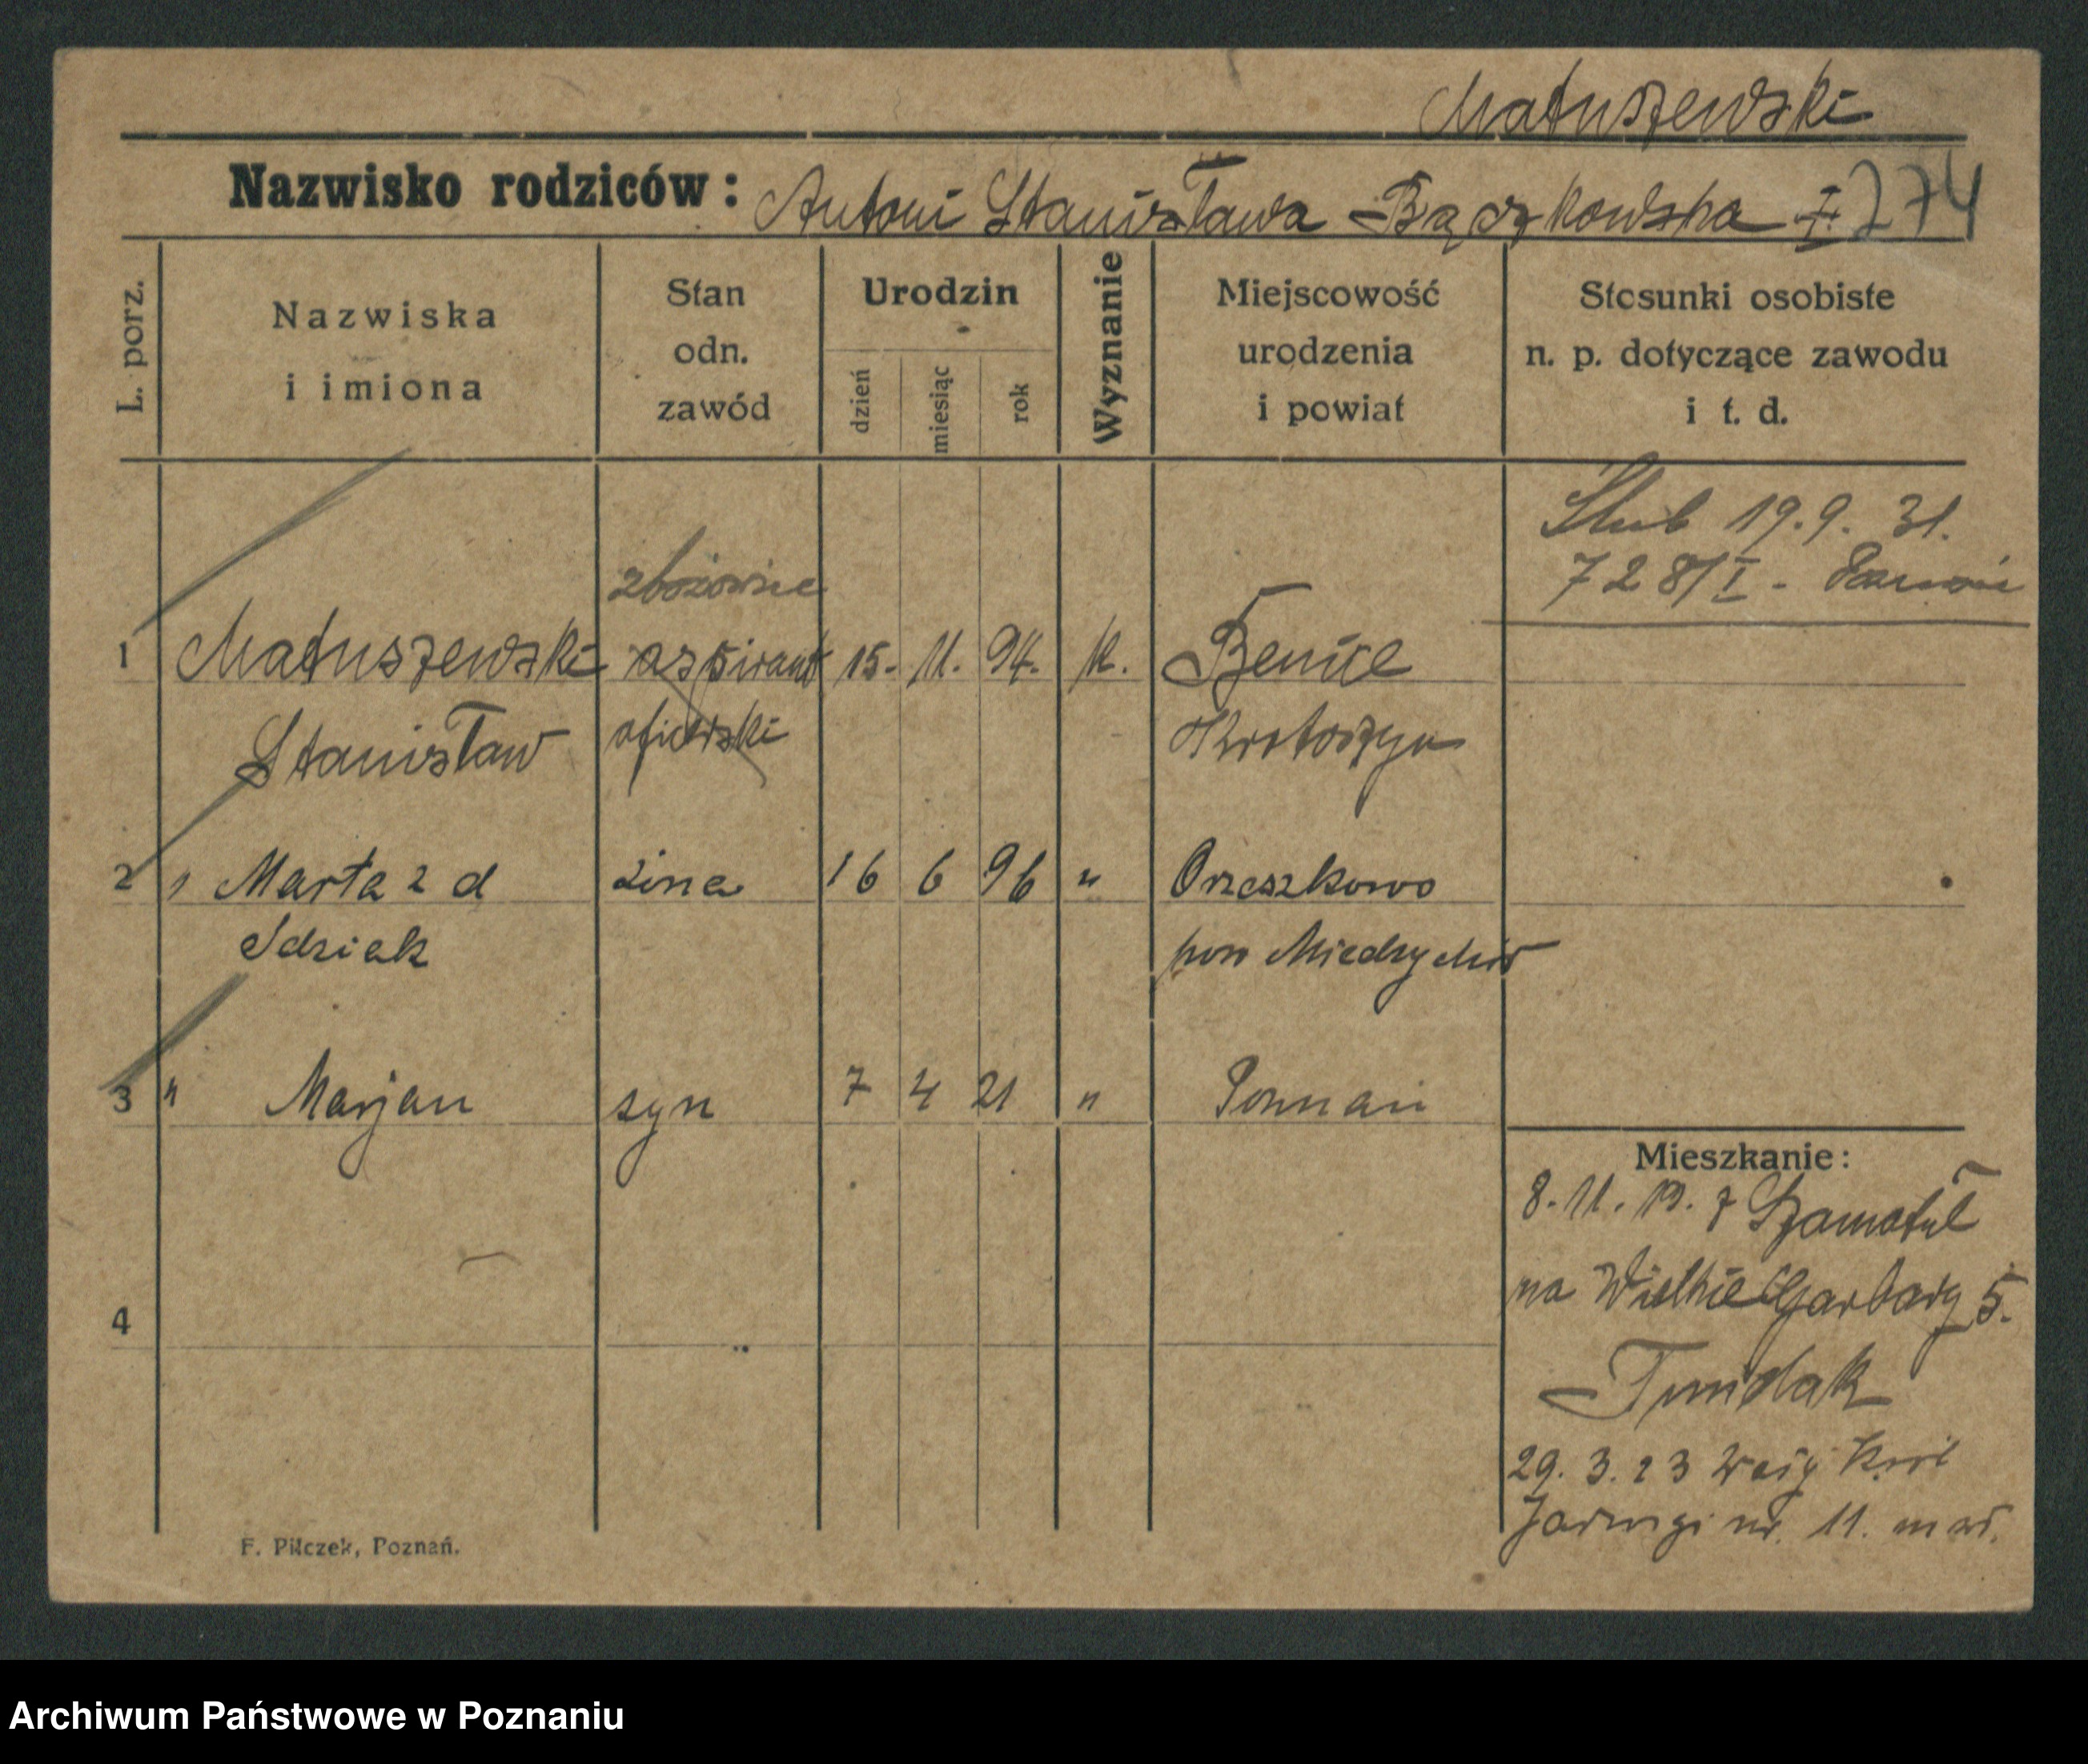 Matuszewski
Nazwisko rodziców: Antoni Stanisława Bączkowska I. 274
L. porz.
Nazwiska
i imiona
Stan
odn.
zawód
Urodzin
dzień
miesiąc
rok
Wyznanie
Miejscowość
urodzenia
i powiat
Stosunki osobiste
n. p. dotyczące zawodu
i t. d.
Ślub 19.9. 31.
728/I - Poznań
1 Matuszewski aspirant 15. 11. 94. k. Benice
Stanisław oficerski Krotoszyn
2 " Marta z d żona 16 6 96 " Orzeszkowo
Idziak pow Miedzychód
3 " Marjan syn 7 4 21 " Poznań
4
Mieszkanie:
8. 11. 19. z Szamotuł
na Wielkie Garbary 5.
29. 3. 23
Jadwigi nr. 11.
F. Pilczek, Poznań.
Archiwum Państwowe w Poznaniu